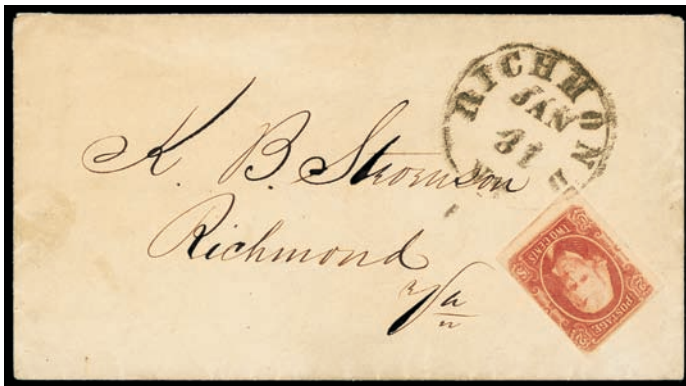 RICHMOND
JAN
31
K. B. Stromson
Richmond
Va
TWO CENTS
POSTAGE